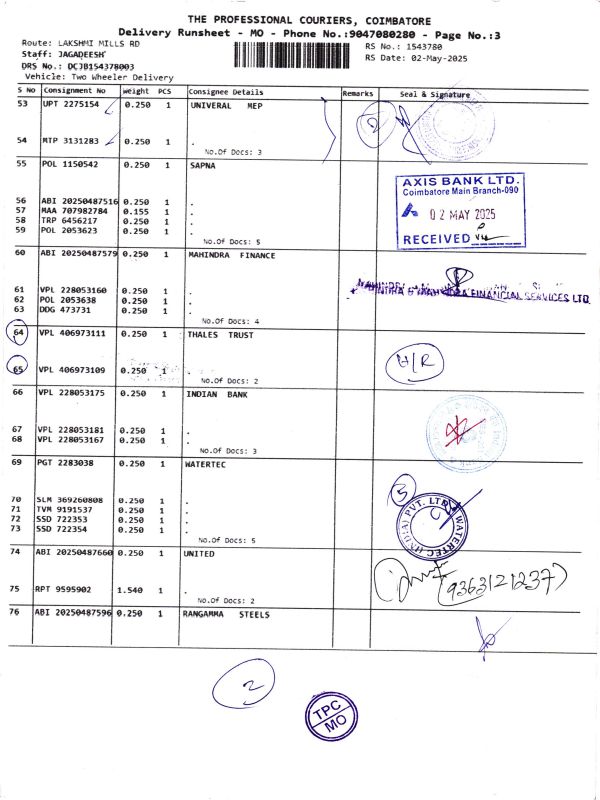 THE PROFESSIONAL COURIERS, COIMBATORE
Delivery Runsheet - MO - Phone No.:9047080280 - Page No.:3
Route: LAKSHMI MILLS RD
RS No.: 1543780
Staff: JAGADEESH
RS Date: 02-May-2025
DRS No.: DCJB154378003
Vehicle: Two Wheeler Delivery
S No Consignment No Weight PCS Consignee Details Remarks Seal & Signature
53 UPT 2275154 0.250 1 UNIVERAL MEP
2
54 MTP 3131283 0.250 1 .
No.Of Docs: 3
55 POL 1150542 0.250 1 SAPNA
AXIS BANK LTD.
Coimbatore Main Branch-090
02 MAY 2025
RECEIVED
56 ABI 20250487516 0.250 1 .
57 MAA 707982784 0.155 1 .
58 TRP 6456217 0.250 1 .
59 POL 2053623 0.250 1 .
No.Of Docs: 5
60 ABI 20250487579 0.250 1 MAHINDRA FINANCE
61 VPL 228053160 0.250 1 .
MAHINDRA & MAHINDRA FINANCIAL SERVICES LTD.
62 POL 2053638 0.250 1 .
63 DDG 473731 0.250 1 .
No.Of Docs: 4
64 VPL 406973111 0.250 1 THALES TRUST
H/R
65 VPL 406973109 0.250 1 .
No.Of Docs: 2
66 VPL 228053175 0.250 1 INDIAN BANK
67 VPL 228053181 0.250 1 .
68 VPL 228053167 0.250 1 .
No.Of Docs: 3
69 PGT 2283038 0.250 1 WATERTEC
5
WATERTEC (INDIA) PVT. LTD.
70 SLM 369260808 0.250 1 .
71 TVM 9191537 0.250 1 .
72 SSD 722353 0.250 1 .
73 SSD 722354 0.250 1 .
No.Of Docs: 5
74 ABI 20250487660 0.250 1 UNITED
(9363121237)
75 RPT 9595902 1.540 1 .
No.Of Docs: 2
76 ABI 20250487596 0.250 1 RANGAMMA STEELS
2
TPC
MO